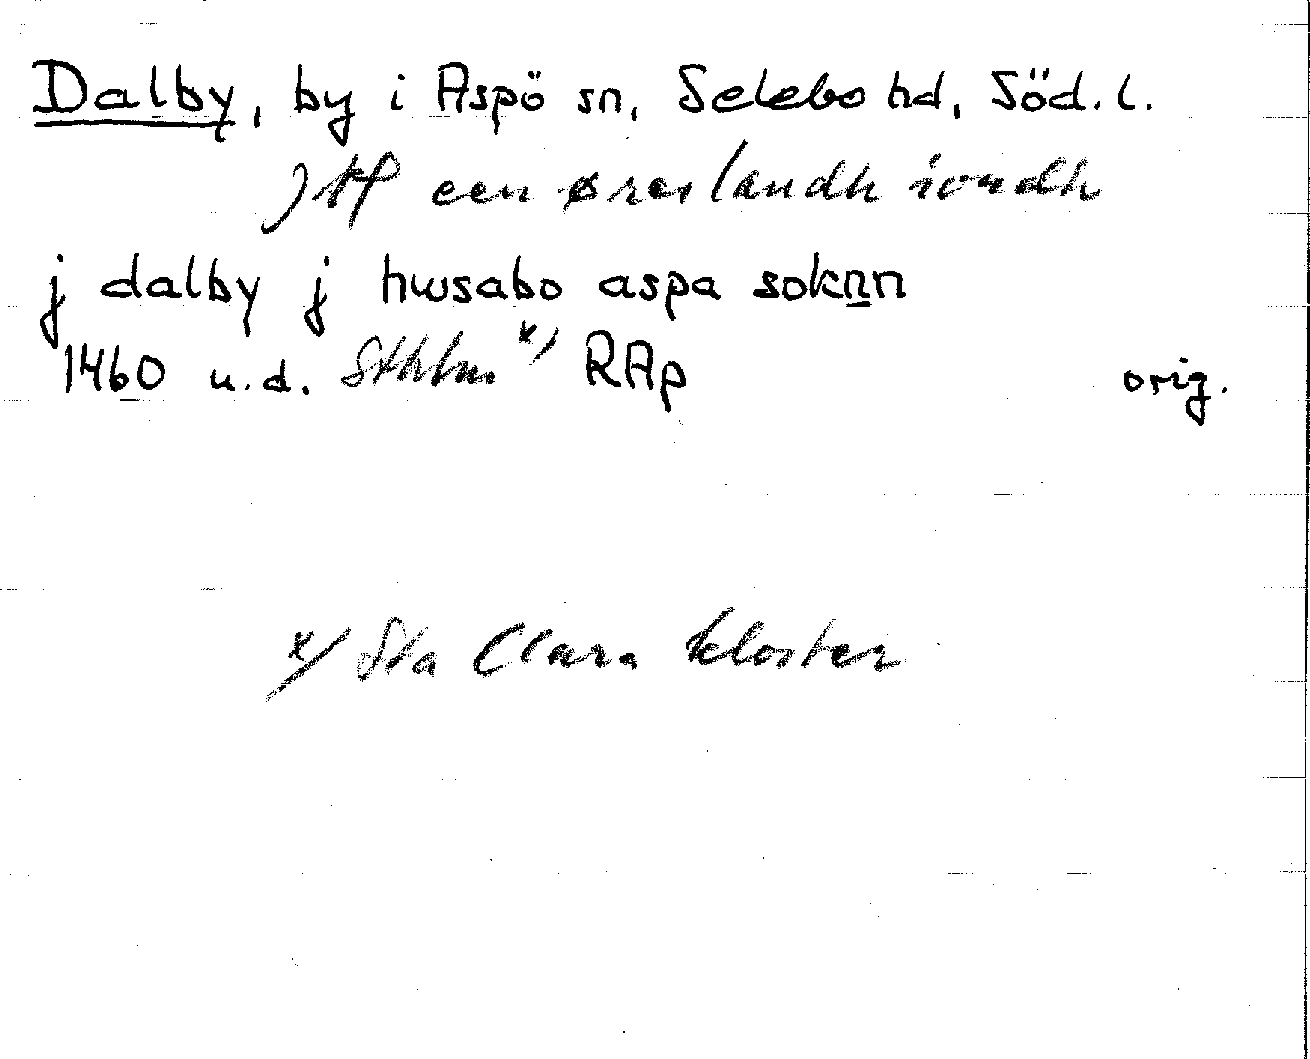 Dalby, by i Aspö sn, Selebo hd, Söd. l.
een øres landh iordh
j dalby j hwsabo aspa soknn
1460 u.d. Sthlm x) RAp orig.
x/ Sta Clara kloster